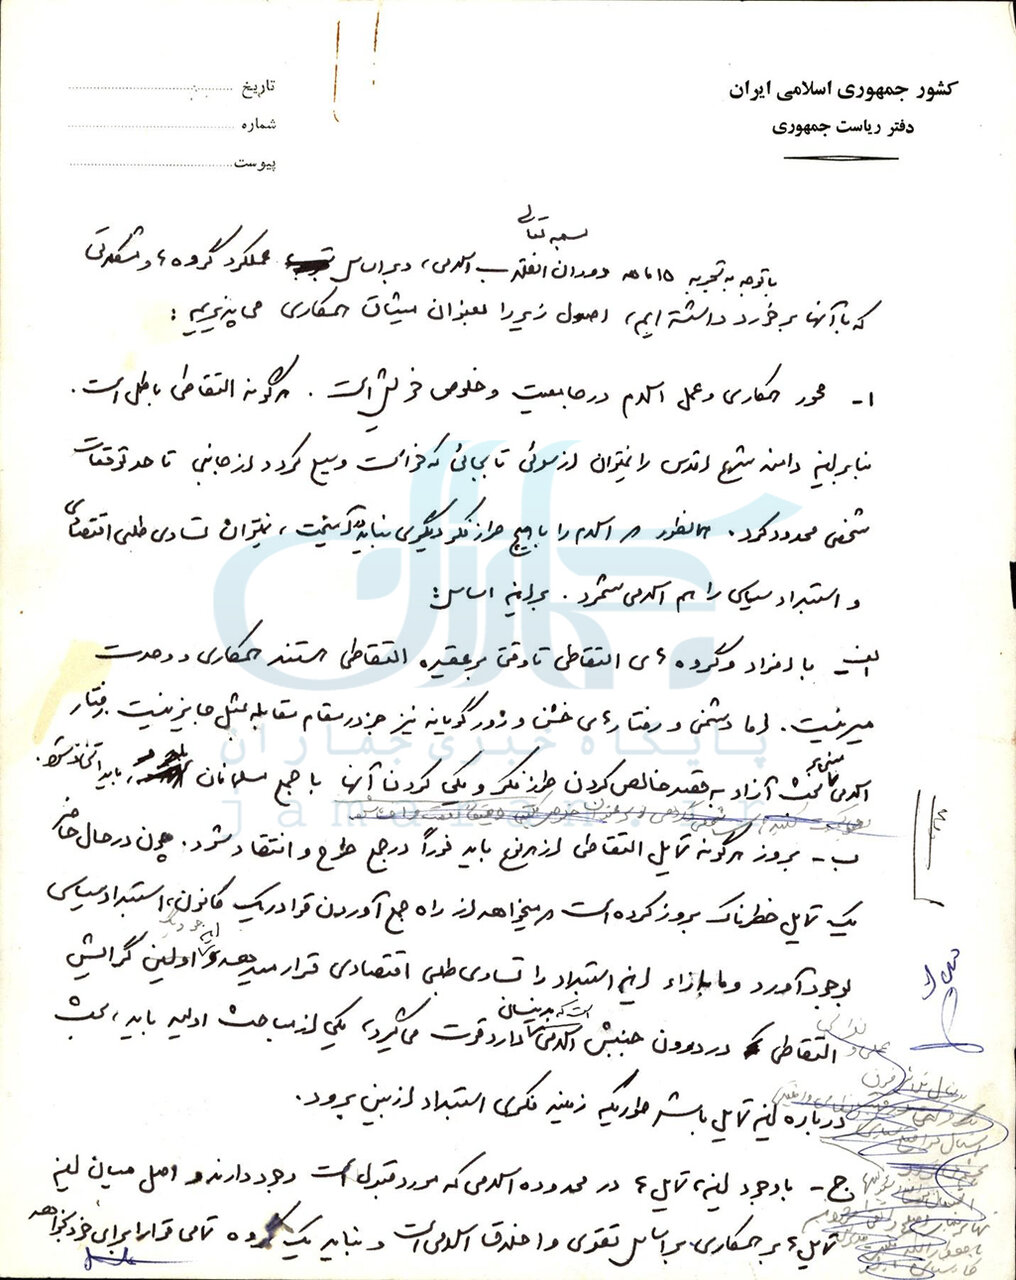 کشور جمهوری اسلامی ایران
دفتر ریاست جمهوری
تاریخ
شماره
پیوست
بسمه تعالی
با توجه به تجربه ۱۵ ماهه دوران انقلاب اسلامی، و بر اساس عملکرد گروه ها و مشکلاتی
که با آنها برخورد داشته ایم، اصول زیر را بعنوان میثاق همکاری می پذیریم:
۱- محور همکاری و عمل اسلام در جامعیت و خلوص خویش است. هرگونه التقاطی باطل است.
بنابراین دامن شرع اقدس را نمیتوان از سوئی تا بجائی که خواست وسیع کرد و از جانبی تا حد توقعات
شخصی محدود کرد. همانطور که اسلام را با هیچ طرز فکر دیگری نباید آمیخت، نمیتوان تساوی طلبی اقتصادی
و استبداد سیاسی را هم اسلامی شمرد. بر این اساس:
الف- با افراد و گروه های التقاطی تا وقتی بر عقیده التقاطی هستند همکاری و وحدت
میسر نیست. اما دشمنی و رفتارهای خشن و زورگویانه نیز جز در مقام مقابله بمثل جایز نیست. رفتار
اسلامی مبتنی بر بحث آزاد به قصد خالص کردن طرز فکر و یکی کردن آنها با جمع مسلمانان باید اتخاذ شود.
ب- بروز هرگونه تمایل التقاطی از هر نوع باید فوراً در جمع طرح و انتقاد شود. چون در حال حاضر
یک تمایل خطرناک بروز کرده است که میخواهد از راه جمع آوردن قوا در یک کانون، استبداد سیاسی
بوجود آورد و مابازاء این استبداد را تساوی طلبی اقتصادی قرار میدهد و این اولین گرایش
التقاطی در درون جنبش اسلامی است که بدینسان دارد قوت می گیرد، یکی از مباحث اولیه باید، بحث
درباره این تمایل باشد بطوریکه زمینه فکری استبداد از بین برود.
ج- با وجود این، تمایل ها در محدوده اسلامی که مورد قبول است وجود دارند و اصل میان این
تمایل ها بر همکاری بر اساس تقوی و اخلاق اسلامی است و نباید یک گروه تمامی قوا را برای خود بخواهد
جماران
پایگاه خبری جماران
jamaran.ir